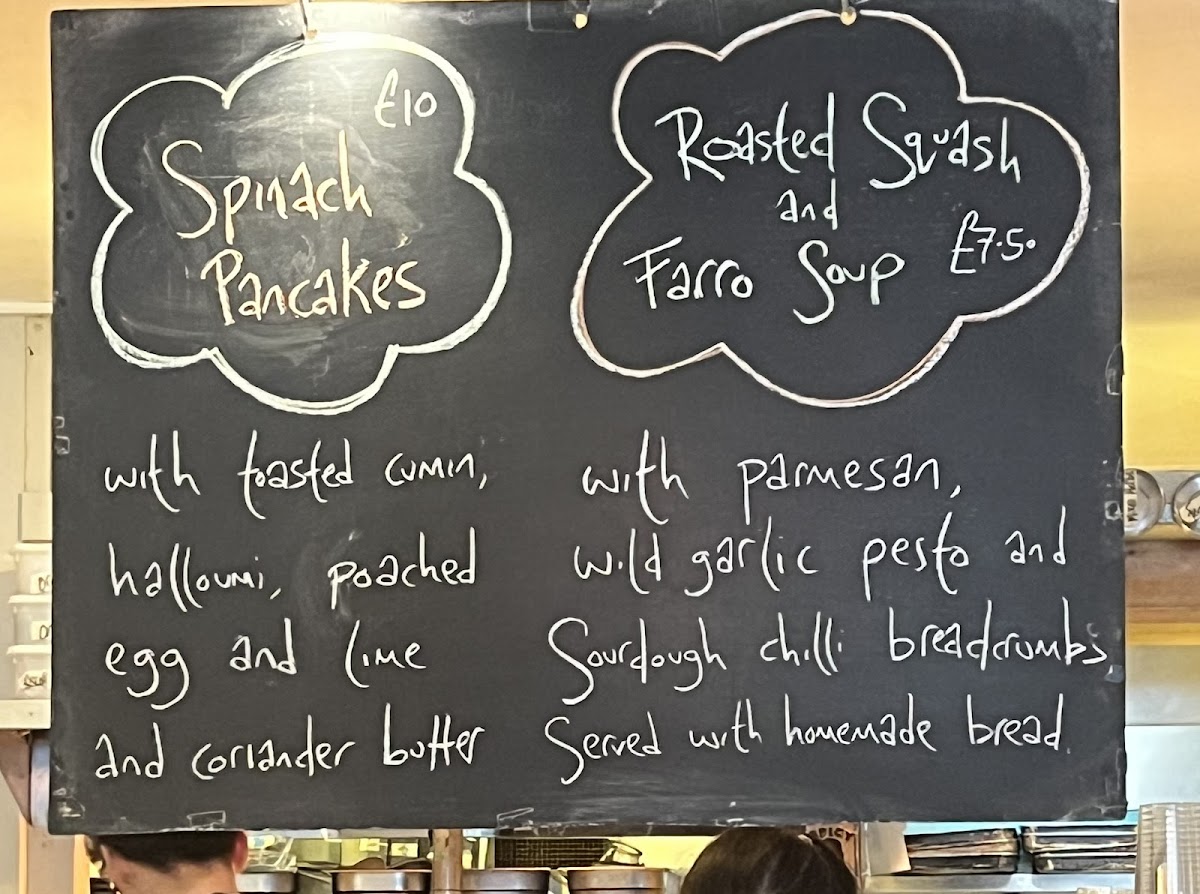 £10
Spinach
Pancakes
with toasted cumin,
halloumi, poached
egg and lime
and coriander butter
Roasted Squash
and
Farro Soup £7.50
with parmesan,
wild garlic pesto and
Sourdough chilli breadcrumbs
Served with homemade bread.